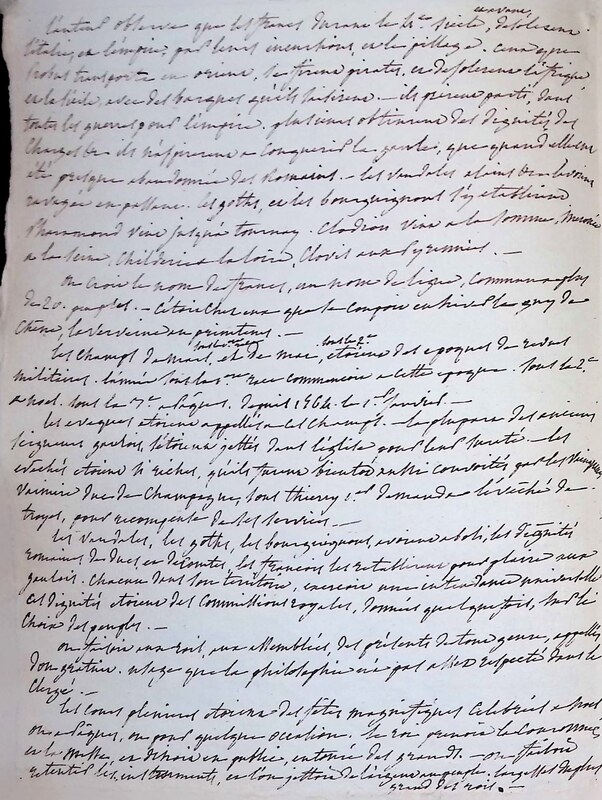 l'auteur observe que les francs durant le 4.e siecle, desolerent
l'italie, en l'empire, par leurs incursions, en le pillage. ceux que
Probus transporta en orient, se firent pirates, en desolerent l'afrique
en la Sicile, avec des barques qu'ils saisirent. — ils prirent parti, dans
toutes les guerres pour l'empire. plusieurs obtinrent des dignités, des
charges &c ils n'aspirerent a conquerir les gaules, que quand elles eurent
été presque abandonnées des Romains. — les vandales alains &c l'avoient
ravagée en passant. les goths, en les bourguignons s'y etablirent
Pharamond vint jusqu'a tournay. Clodion vint a la Somme, Merovée
a la Seine. Childeric a la loire, Clovis aux Pyrennées. —
On croit le nom de francs, un nom de ligue, commun a plus
de 20. peuples. — C'étoit chez eux que se coupoit en hiver le guy de
chene, la verveine au printems. —
les champs de mars, et de mai, etoient des epoques de revues
militaires. l'année sous la 1.ere race commencoit a cette epoque. sous la 2.e
a noel. sous la 3.e a Pâques. depuis 1564. le 1.er Janvier. —
les eveques etoient appellés a ces champs. — la plupart des anciens
seigneurs gaulois, s'étoient jettés dans l'église pour leur sureté. — les
evêchés etoient si riches, qu'ils furent bientôt aussi convoités par les
Vaimire duc de Champagne, sous thierry 1.er demanda l'évêché de
troyes, pour recompense de ses services. —
les vandales, les goths, les bourguignons, avoient aboli, les dignités
romaines de ducs en de comtes, les francois les retablirent pour plaire aux
gaulois. chacun dans son territoire, exercoit une intendance universelle
ces dignités etoient des commissions royales, données quelques fois, sur le
choix des peuples. —
on faisoit aux rois, aux assemblées, des présents de tout genre, appellés
don gratuit. usage que la philosophie n'a pas assez respecté dans le
clergé. —
les cours plenieres etoient des fêtes magnifiques celebrées a noel
ou a Pâques, ou pour quelque occasion. le roi prenoit la couronne,
en la messe, en dinoit en public, entouré des grands. — on faisoit
retentir les instruments, en l'on jettoit de l'argent au peuple. largesses du plus
grand des rois. —